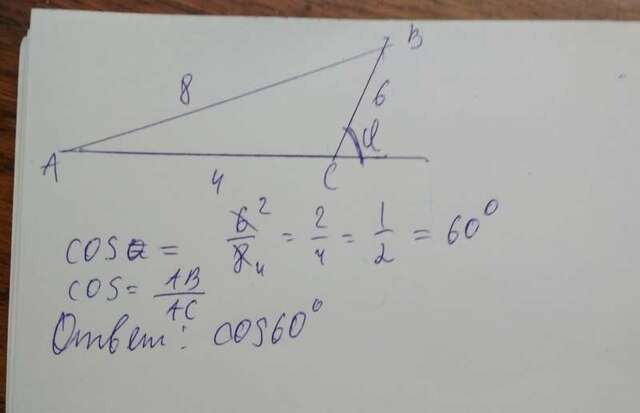 B
8
6
α
A
4
C
cos α = 6 2 / 8 4 = 2/4 = 1/2 = 60°
cos = AB/AC
Ответ: cos60°